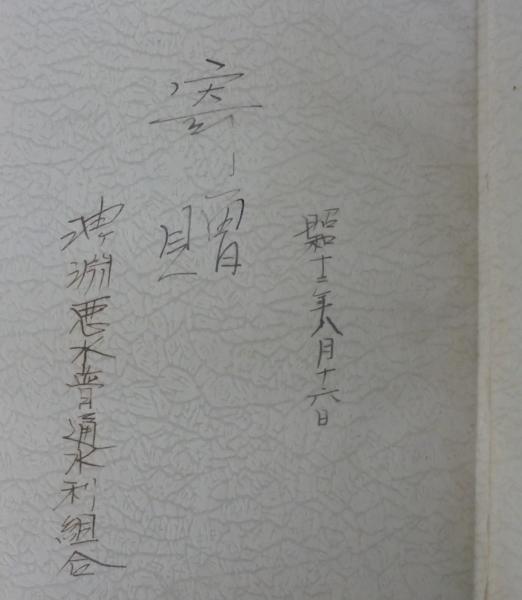 昭和十三年八月十六日
寄贈
津淵悪水普通水利組合